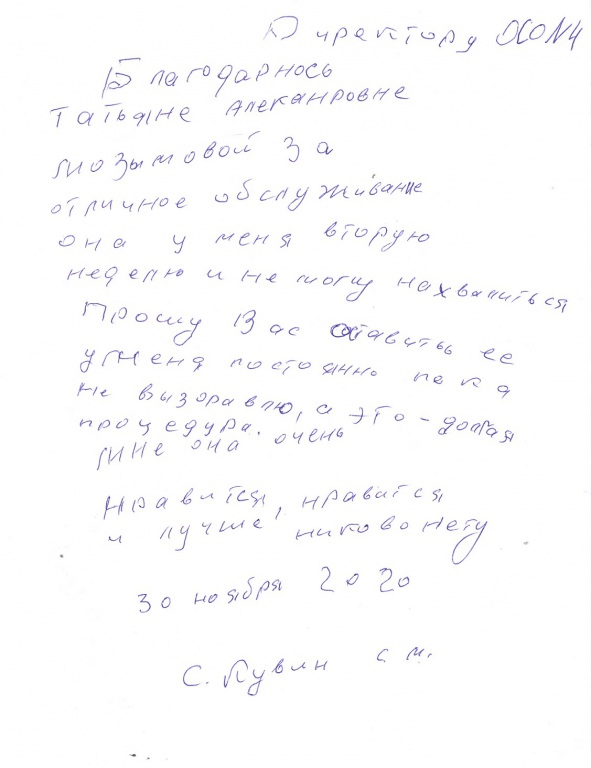 Директору ОСО №4
Благодарнось
Татьяне Алеканровне
Мозымовой за
отличное обслуживание
она у меня вторую
неделю и не могу нахвалиться
Прошу Вас оставить ее
у меня постоянно пека
не вызоравлю, а это - долгая
процедура.
мне она очень
нравится, нравится
и лучше никово нету
30 ноября 2020
С. с.м.